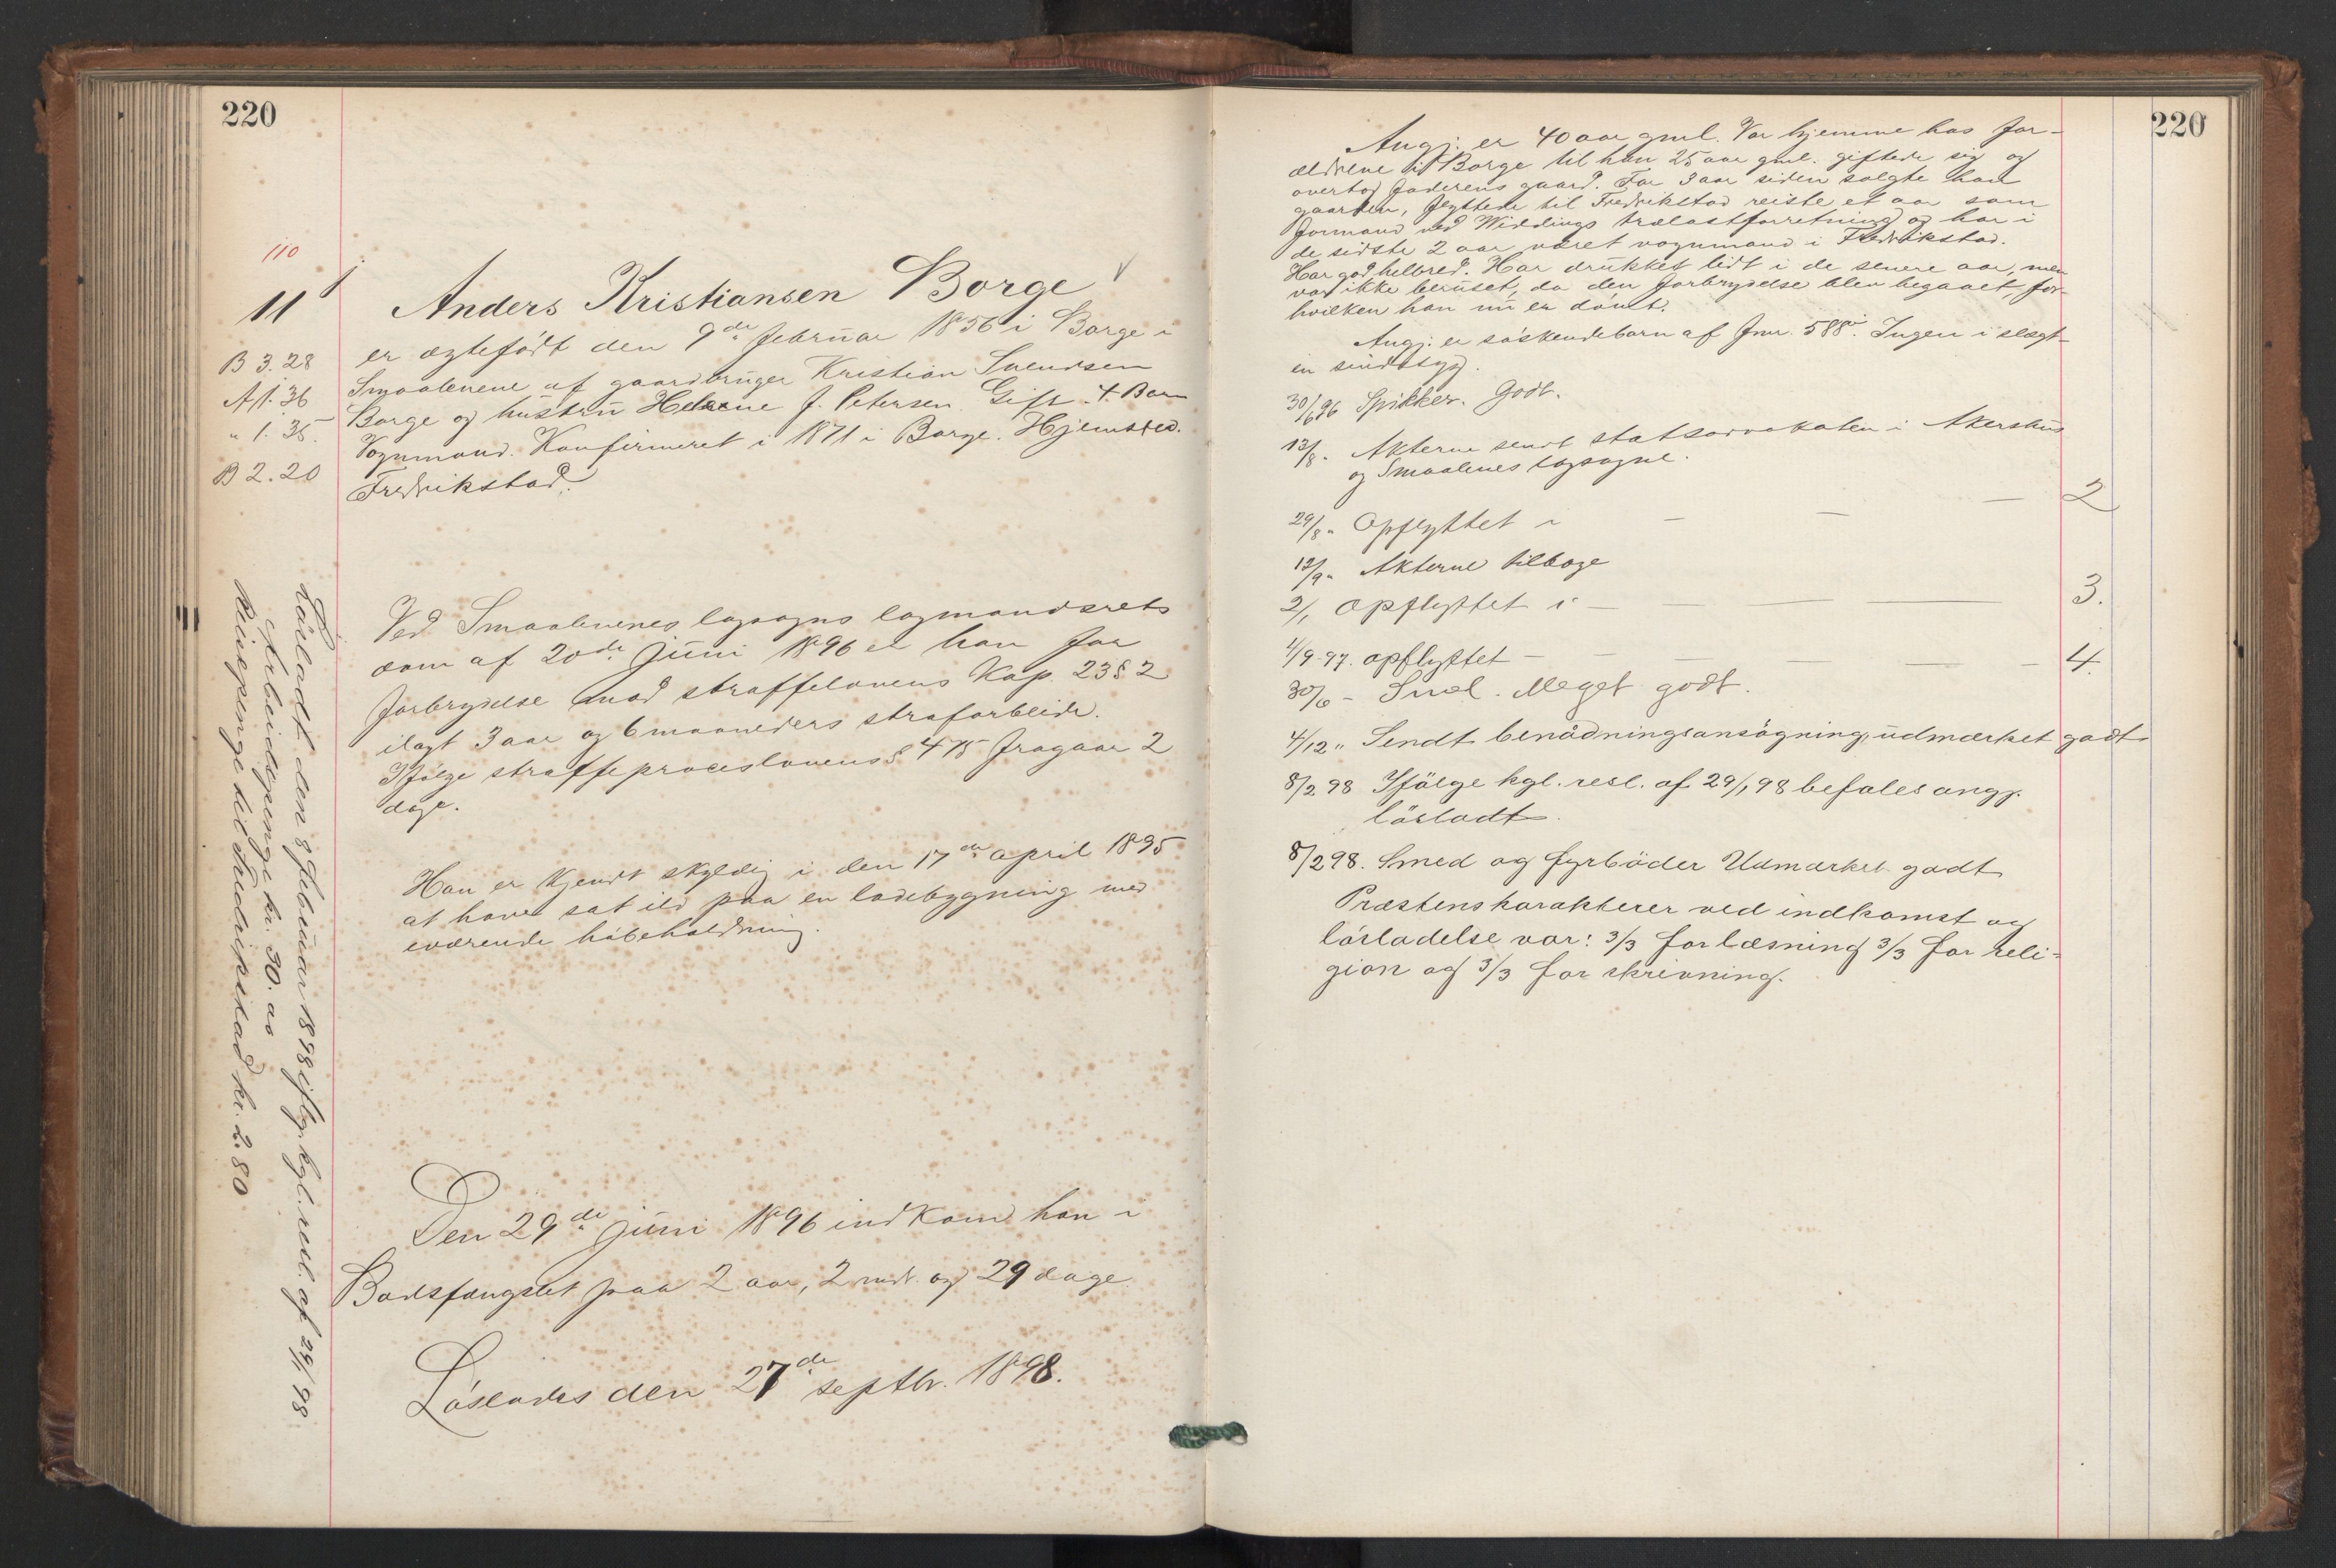 220
110
11
B 3.28
A 1.36
" 1.35.
B 2.20
Anders Kristiansen Borge
er ægtefödt den 9de februar 1856 i Borge i
Smaalenene af gaardbruger Kristian Svendsen
Borge og hustru Helene J. Petersen. Gift. 4 Barn
Vognmand. Konfirmeret i 1871 i Borge. Hjemsted.
Fredrikstad.
Ved Smaalenenes lagsogns lagmandsrets
dom af 20de juni 1896 er han for
forbrydelse mod straffelovens Kap. 23 § 2
ilagt 3 aar og 6 maaneders strafarbeide.
Ifölge straffeproceslovens § 475 fragaar 2
dage.
Han er kjendt skyldig i den 17de april 1895
at have sat ild paa en ladebygning med
iværende höbeholdning.
Den 29de juni 1896 indkom han i
Bodsfængslet paa 2 aar, 2 mdr. og 29 dage.
Löslades den 27de septbr. 1898.
Lösladt den 8 februar 1898 iflg. kgl. resl. af 29/1 98
Arbeidspenge kr. 30.00
Reisepenge til Fredrikstad kr. 2.80
220
Angj. er 40 aar gml. Var hjemme hos for-
ældrene i Borge til han 25 aar gml. giftede sig og
overtog faderens gaard. For 3 aar siden solgte han
gaarden, flyttede til Fredrikstad reiste et aar som
formand ved Widdings trælastforretning og har i
de sidste 2 aar været vognmand i Fredrikstad.
Har god helbred. Har drukket lidt i de senere aar, men
var ikke beruset, da den forbrydelse blev begaaet, for
hvilken han nu er dömt.
Angj. er söskendebarn af Fnr. 588. Ingen i slægt-
en sindssyg.
30/6 96 Spikker. Godt.
13/8 " Akterne sendt statsadvokaten i Akershus
og Smaalenes lagsogne.
29/8 " Opflyttet i — — — 2
12/9 " Akterne tilbage
2/1 opflyttet i — — — 3.
1/9-97. opflyttet — — — — — 4.
30/6 - Snel. Meget godt.
4/12 " Sendt benådningsansögning, udmærket godt
8/2 98 Ifölge kgl. resl. af 29/1 98 befales angj.
lösladt.
8/2 98. Smed og fyrböder Udmærket godt
Præstens karakterer ved indkomst og
lösladelse var: 3/3 for læsning 3/3 for reli-
gion og 3/3 for skrivning.